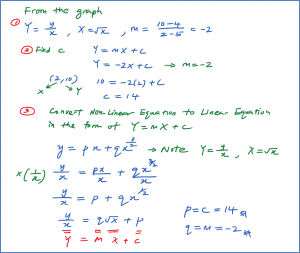 From the graph
① Y = y/x , X = √x , m = (10-4)/(2-5) = -2
② Find c Y = mX + c
Y = -2X + c → m = -2
(2, 10) 10 = -2(2) + c
X Y
c = 14
③ Convert Non-Linear Equation to Linear Equation
in the form of Y = mX + c
y = px + qx^(3/2) → Note Y = y/x , X = √x
x(1/x) y/x = px/x + qx^(3/2)/x
y/x = p + qx^(1/2)
y/x = q√x + p
Y = m X + c
p = c = 14
q = m = -2